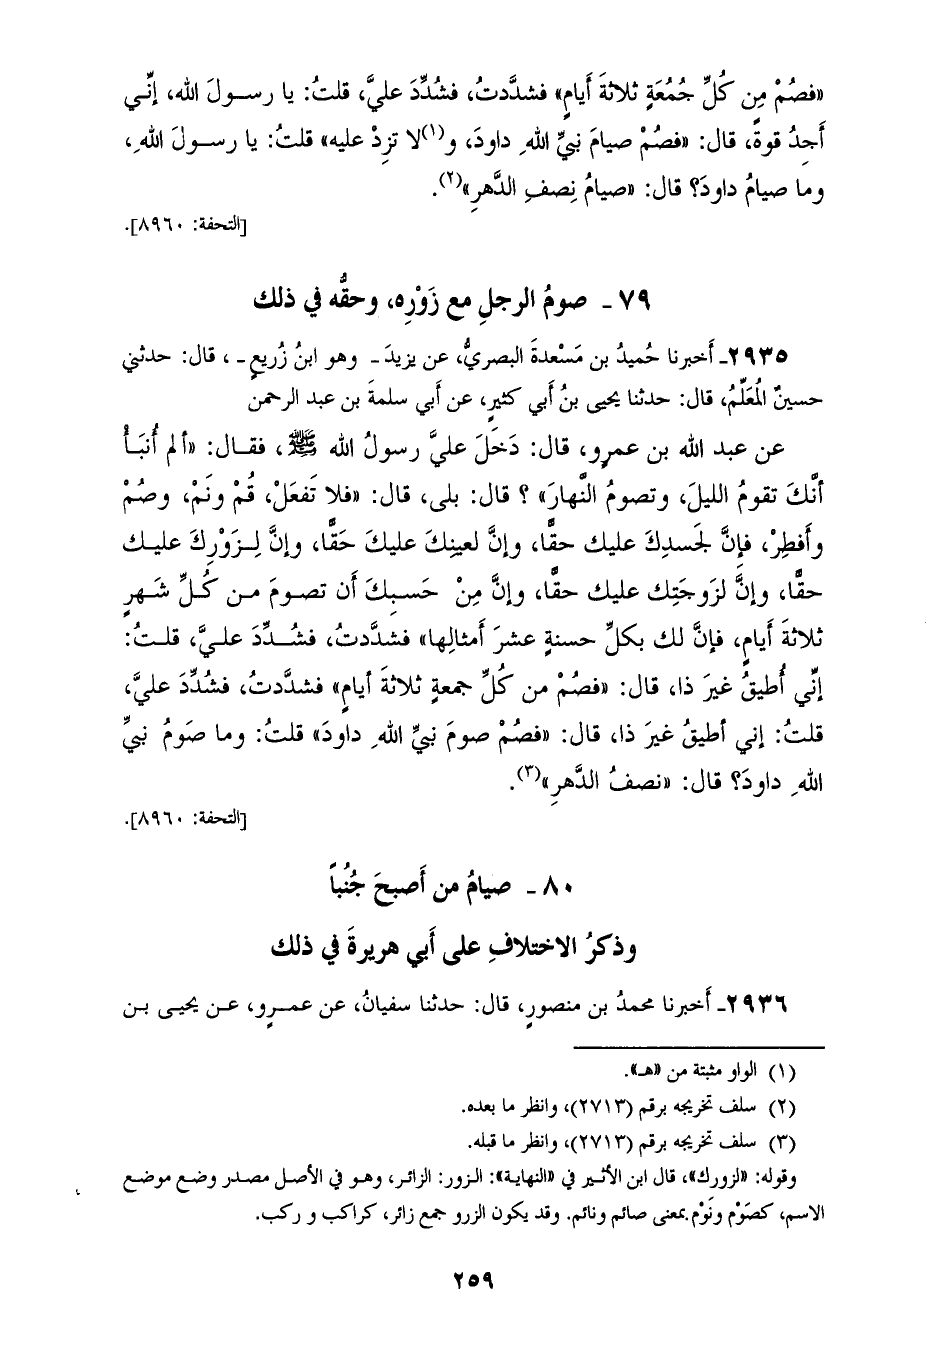 «فصُمْ مِن كُلِّ جُمُعَةٍ ثلاثةَ أَيامٍ» فشدَّدتُ، فشُدِّدَ عليَّ، قلتُ: يا رسولَ الله، إنِّي
أَجدُ قوةً، قال: «فصُمْ صيامَ نبيِّ اللهِ داودَ، و(١)لا تزِدْ عليه» قلتُ: يا رسولَ اللهِ،
وما صيامُ داودَ؟ قال: «صيامُ نِصفِ الدَّهرِ»(٢).
[التحفة: ٨٩٦٠].
٧٩ - صومُ الرجلِ مع زَوْرِه، وحقُّه في ذلك
٢٩٣٥- أَخبرنا حُميدُ بن مَسْعدةَ البصريُّ، عن يزيدَ - وهو ابنُ زُريعٍ -، قال: حدثني
حسينٌ المُعلِّمُ، قال: حدثنا يحيى بنُ أبي كثيرٍ، عن أَبي سلمةَ بن عبد الرحمن
عن عبد الله بن عمرٍو، قال: دَخَلَ عليَّ رسولُ الله ﷺ، فقال: «ألم أُنبَأْ
أنَّكَ تقومُ الليلَ، وتصومُ النَّهارَ» ؟ قال: بلى، قال: «فلا تَفعَلْ، قُمْ ونَمْ، وصُمْ
وأَفطِرْ، فإنَّ لجَسدِكَ عليك حقًّا، وإنَّ لعينِكَ عليكَ حَقًّا، وإنَّ لِزَوْرِكَ عليك
حقًّا، وإنَّ لزَوجَتِك عليك حقًّا، وإنَّ مِنْ حَسبِكَ أَن تصومَ من كُلِّ شَهرٍ
ثلاثةَ أَيامٍ، فإنَّ لك بكلِّ حسنةٍ عشرَ أَمثالِها» فشدَّدتُ، فشُدِّدَ عليَّ، قلتُ:
إنِّي أُطيقُ غيرَ ذا، قال: «فصُمْ من كُلِّ جمعةٍ ثلاثةَ أيامٍ» فشدَّدتُ، فشُدِّدَ عليَّ،
قلتُ: إني أطيقُ غيرَ ذا، قال: «فصُمْ صومَ نبيِّ اللهِ داودَ» قلتُ: وما صَومُ نبيِّ
اللهِ داودَ؟ قال: «نصفُ الدَّهرِ»(٣).
[التحفة: ٨٩٦٠].
٨٠ - صيامُ من أَصبحَ جُنُباً
وذكرُ الاختلافِ على أَبي هريرةَ في ذلك
٢٩٣٦- أَخبرنا محمدُ بن منصورٍ، قال: حدثنا سفيانُ، عن عمرٍو، عن يحيى بن
(١) الواو مثبتة من «هـ».
(٢) سلف تخريجه برقم (٢٧١٣)، وانظر ما بعده.
(٣) سلف تخريجه برقم (٢٧١٣)، وانظر ما قبله.
وقوله: «لزورك»، قال ابن الأثير في «النهاية»: الزور: الزائر، وهو في الأصل مصدر وضع موضع
الاسم، كصَوْم ونَوْم بمعنى صائم ونائم. وقد يكون الزرو جمع زائر، كراكب و ركب.
٢٥٩